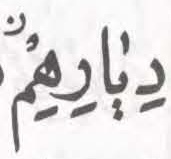 دِيَٰارِهِمْ ۛ